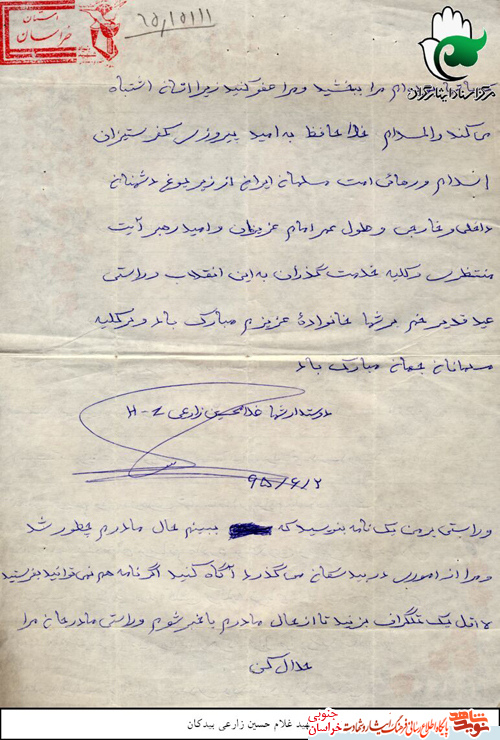 استان
خراسان
۶۵/۱۵۱/۱
مرکز اسناد ایثارگران
ام مرا ببخشید و مرا عفو کنید زیرا انسان اشتباه
می‌کند والسلام خدا حافظ به امید پیروزی
اسلام و رهائی امت مسلمان ایران از زیر یوغ دشمنان
داخلی و خارجی و طول عمر امام عزیزمان و امید رهبر آیت
منتظری و کلیه خدمت گذاران به این انقلاب و راستی
عید قدیر خم بر شما خانوادهٔ عزیزم مبارک باد و بر کلیه
مسلمانان جهان مبارک باد
دوستدار شما غلامحسین زارعی H-Z
۶۵/۶/۲
و راستی بر من یک نامه بنویسید که ببینم حال مادرم چطور شد
و مرا از اموری در بیدسکان می‌گذرد آگاه کنید اگر نامه هم نمی‌توانید بنویسید
لااقل یک تلگراف بزنید تا از حال مادرم باخبر شوم و راستی مادرجان مرا
حلال کن
شهید غلام حسین زارعی بیدکان
نوید شاهد
پایگاه اطلاع رسانی فرهنگ ایثار و شهادت
خراسان جنوبی